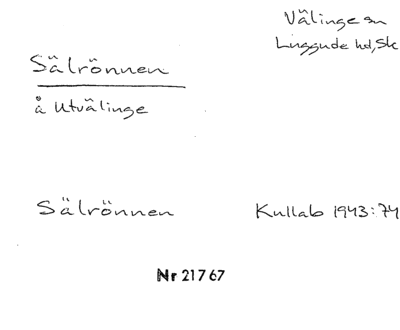 Välinge sn
Luggude hd, Sk
Sälrönnen
å Utvälinge
Sälrönnen Kullab 1943:74
Nr 21767